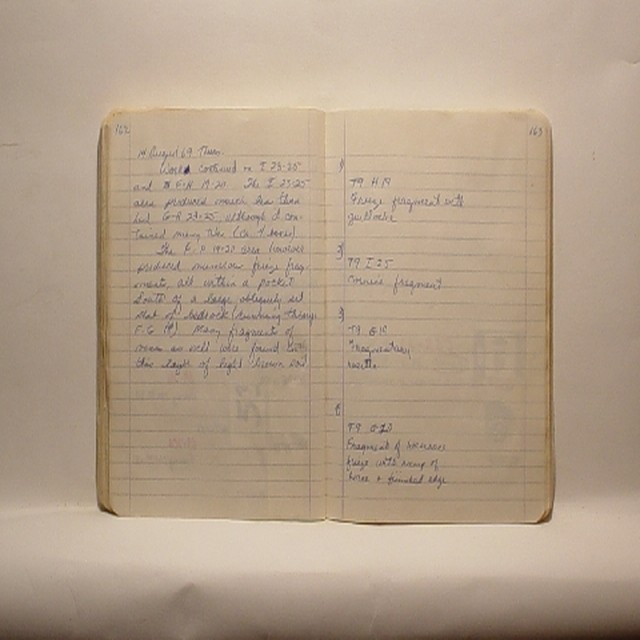 162
14 August 69 Thurs.
Work continued in I 23-25
and E-H 19-20 The I 23-25
area produced much less than
did G-H 23-25, although it con-
tained many tiles (ca. 4 boxes)
The E-H 19-20 area however
produced marble frieze frag-
ments, all within a pocket
South of a large obliquely set
slab of bedrock (running through
F-G 19). Many fragments of
as well were found in
this layer of light brown soil
163
1)
T9 H19
Frieze fragment with
guilloche
2)
T9 I 25
Cornice fragment
3)
T9 G19
Fragmentary
rosette
T9 G20
Fragment of
frieze with rump of
horse + finished edge